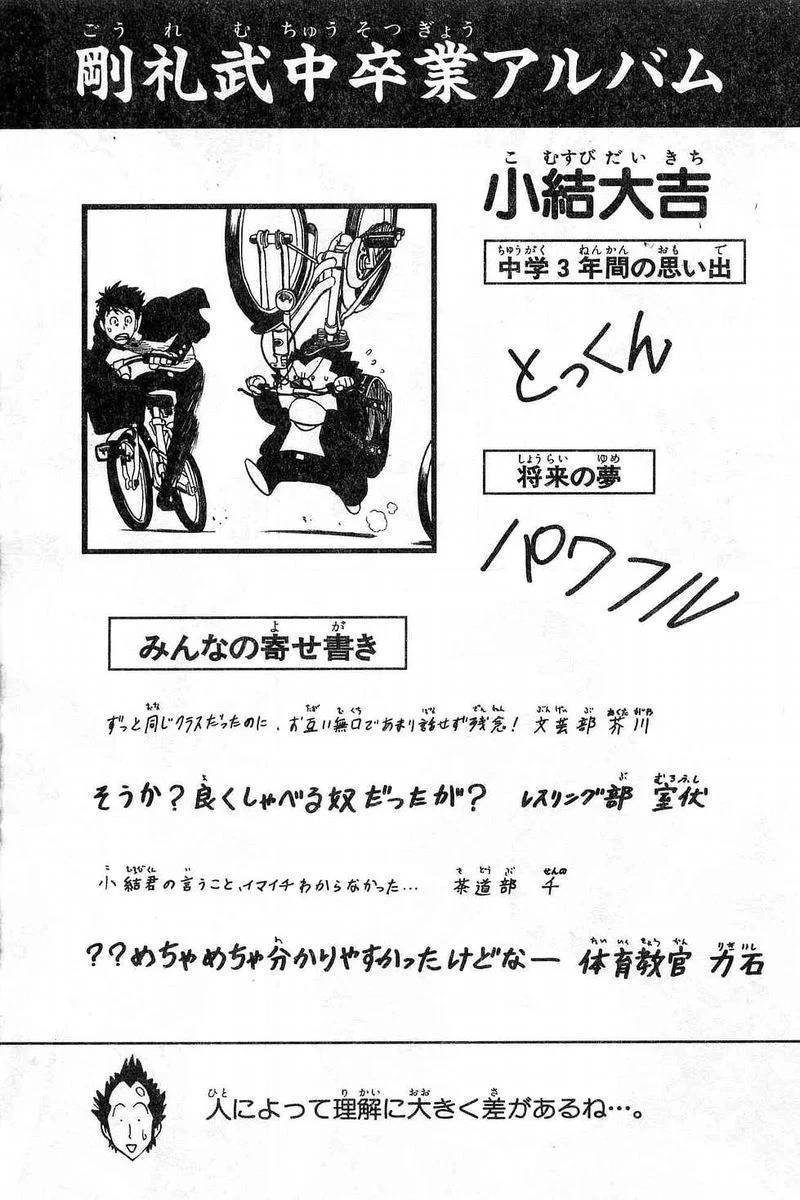 剛礼武中卒業アルバム
ごうれむちゅうそつぎょう
小結大吉
こむすびだいきち
中学3年間の思い出
ちゅうがくねんかんおもで
とっくん
将来の夢
しょうらいゆめ
パワフル
みんなの寄せ書き
よが
ずっと同じクラスだったのに、お互い無口であまり話せず残念！ 文芸部 芥川
そうか？良くしゃべる奴だったが？ レスリング部 室伏
小結君の言うこと、イマイチわからなかった… 茶道部 千
？？めちゃめちゃ分かりやすかったけどなー 体育教官 力石
人によって理解に大きく差があるね…。
ひとりかいおおさ